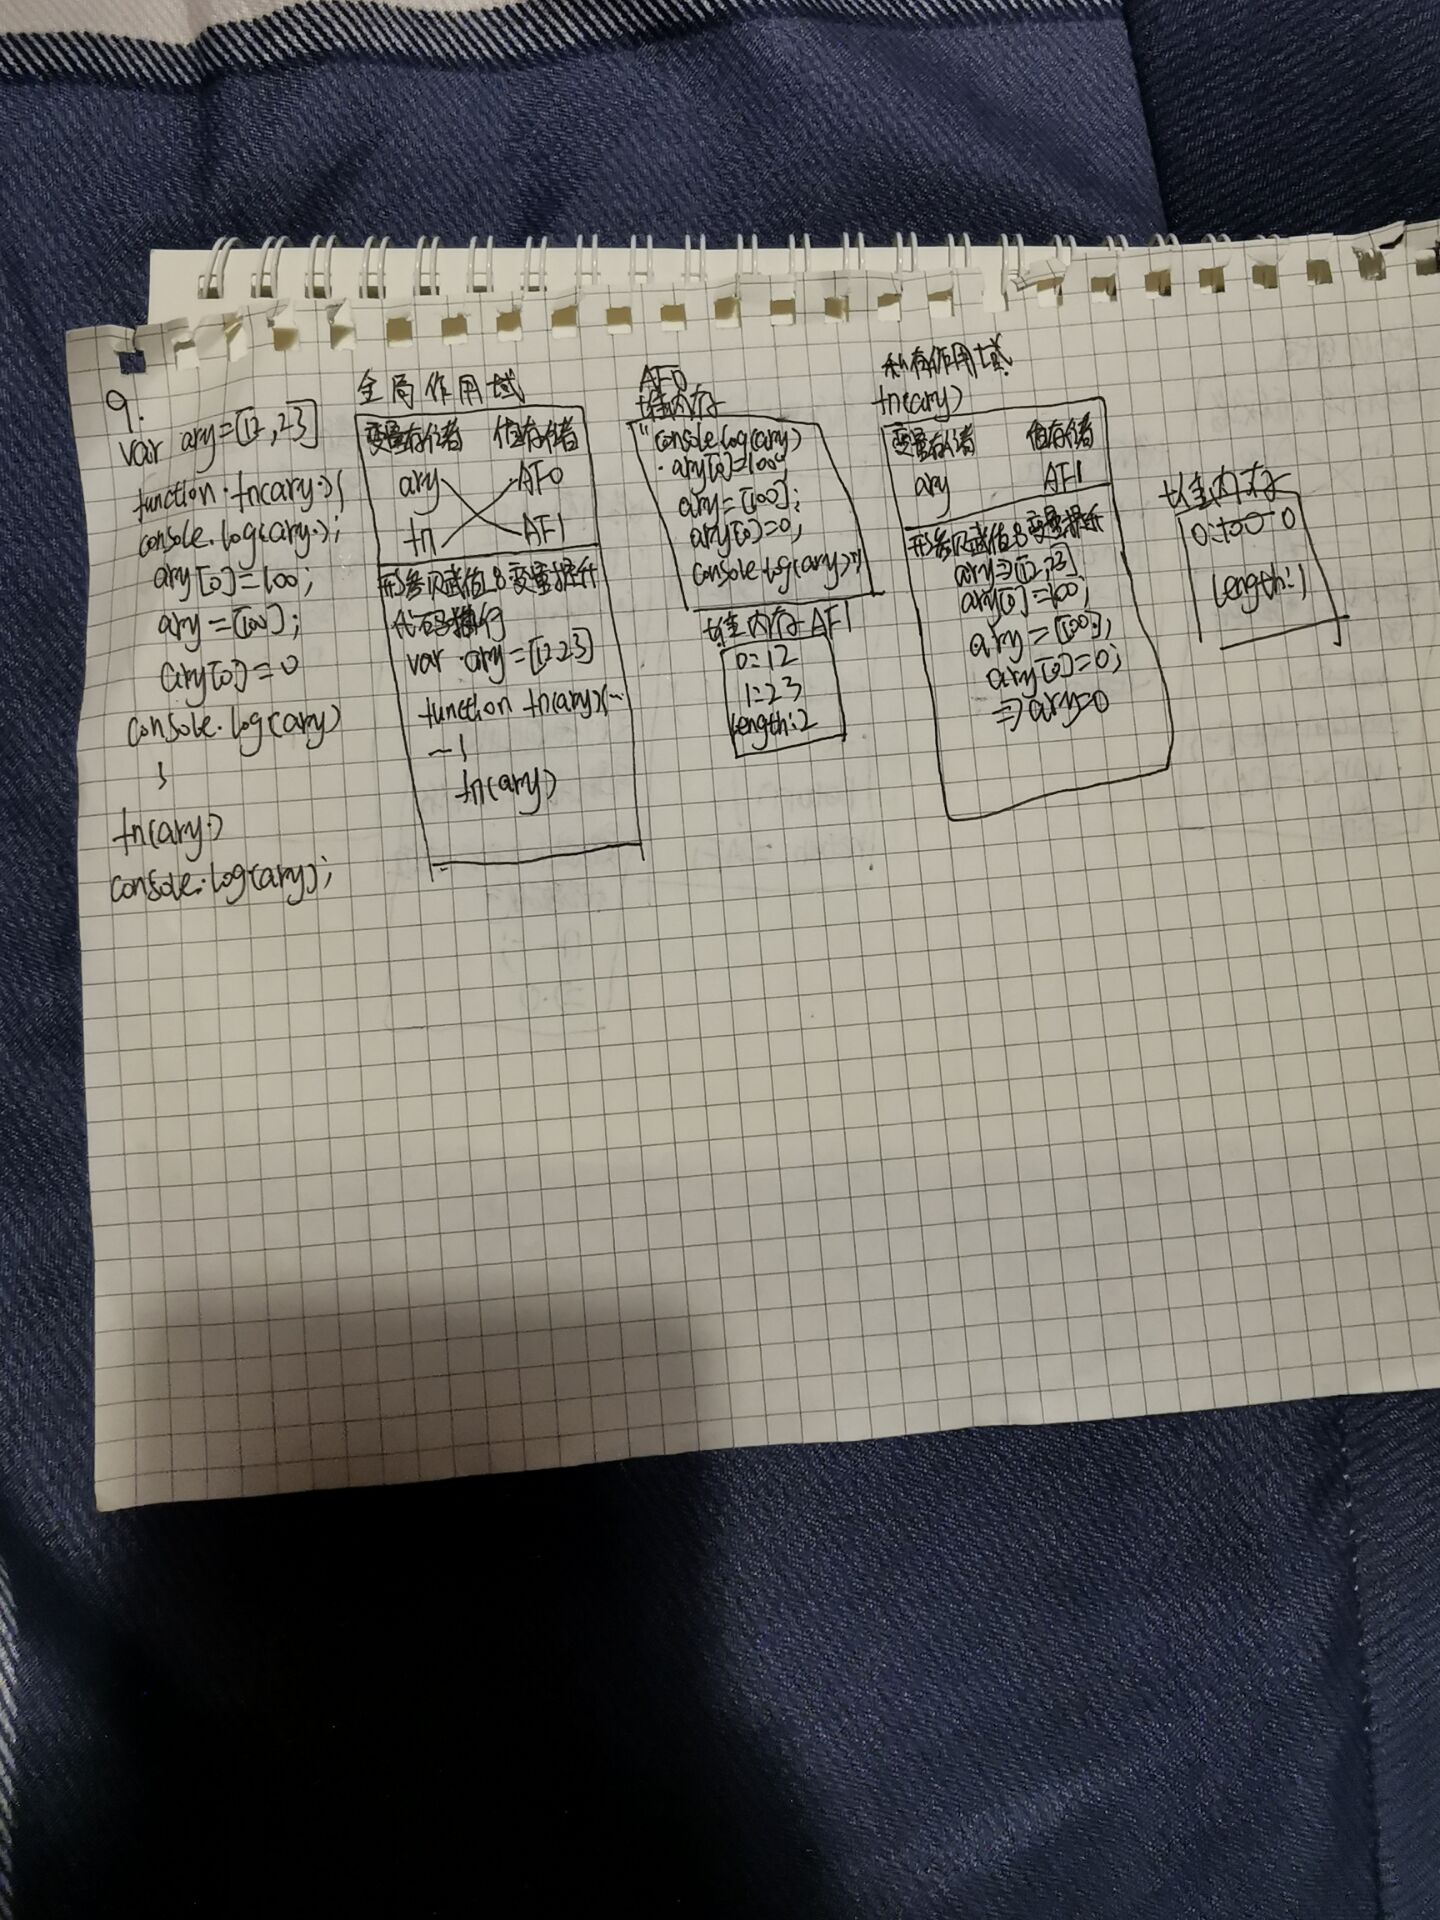 9.
var ary=[12,23]
function fn(ary){
console.log(ary);
ary[0]=100;
ary=[100];
ary[0]=0
console.log(ary)
}
fn(ary)
console.log(ary);
全局作用域
变量存储 值存储
ary AF0
fn AF1
形参赋值&变量提升
代码执行
var ary=[12,23]
function fn(ary){…
…}
fn(ary)
AF0
堆内存
"console.log(ary)
ary[0]=100;
ary=[100];
ary[0]=0;
console.log(ary)"
堆内存AF1
0:12
1:23
length:2
私有作用域
fn(ary)
变量存储 值存储
ary AF1
形参赋值&变量提升
ary⇒[12,23]
ary[0]=100;
ary=[100];
ary[0]=0;
⇒ary=0
堆内存
0:100 0
length:1